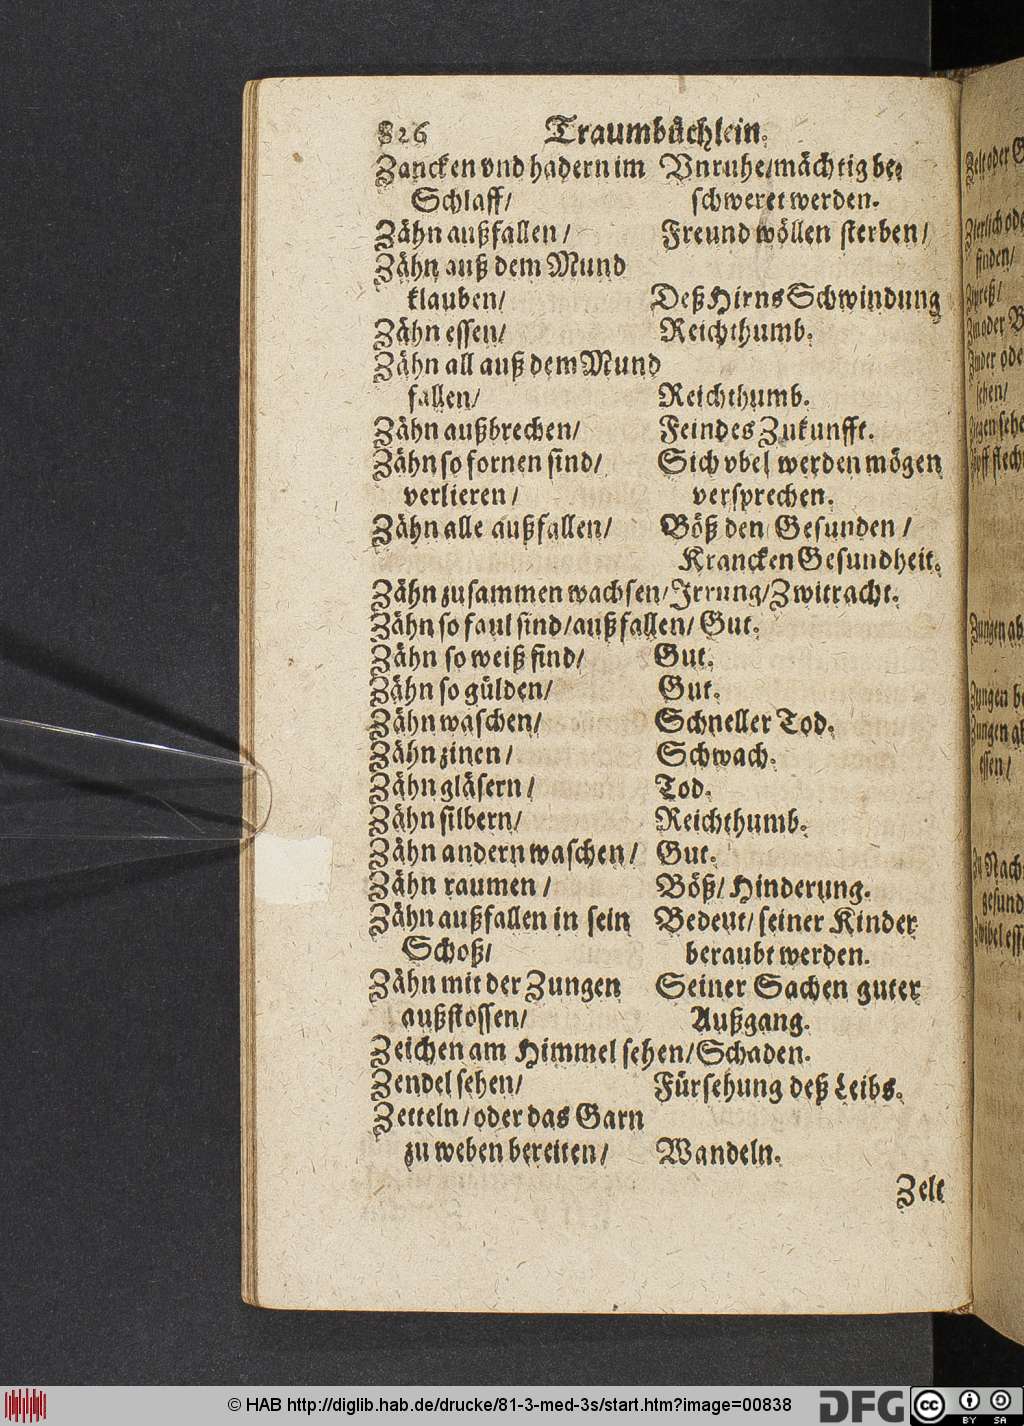 826 Traumbüchlein.
Zancken vnd hadern im Vnruhe/mächtig be-
Schlaff/ schweret werden.
Zähn außfallen / Freund wöllen sterben/
Zähn auß dem Mund
klauben/ Deß Hirns Schwindung
Zähn essen/ Reichthumb.
Zähn all auß dem Mund
fallen/ Reichthumb.
Zähn außbrechen/ Feindes Zukunfft.
Zähn so fornen sind/ Sich vbel werden mögen
verlieren / versprechen.
Zähn alle außfallen/ Böß den Gesunden /
Krancken Gesundheit.
Zähn zusammen wachsen/Irrung/Zwitracht.
Zähn so faul sind/außfallen/ Gut.
Zähn so weiß sind/ Gut.
Zähn so gülden/ Gut.
Zähn waschen/ Schneller Tod.
Zähn zinen / Schwach.
Zähn gläsern / Tod.
Zähn silbern/ Reichthumb.
Zähn andern waschen/ Gut.
Zähn raumen / Böß/ Hinderung.
Zähn außfallen in sein Bedeut/ seiner Kinder
Schoß/ beraubt werden.
Zähn mit der Zungen Seiner Sachen guter
außstossen/ Außgang.
Zeichen am Himmel sehen/Schaden.
Zendel sehen/ Fürsehung deß Leibs.
Zetteln/oder das Garn
zu weben bereiten/ Wandeln.
Zelt
Zelt oder
finden/
oder
sehen/
Zungen
Zungen
Zungen
essen/
© HAB http://diglib.hab.de/drucke/81-3-med-3s/start.htm?image=00838
DFG
cc BY SA